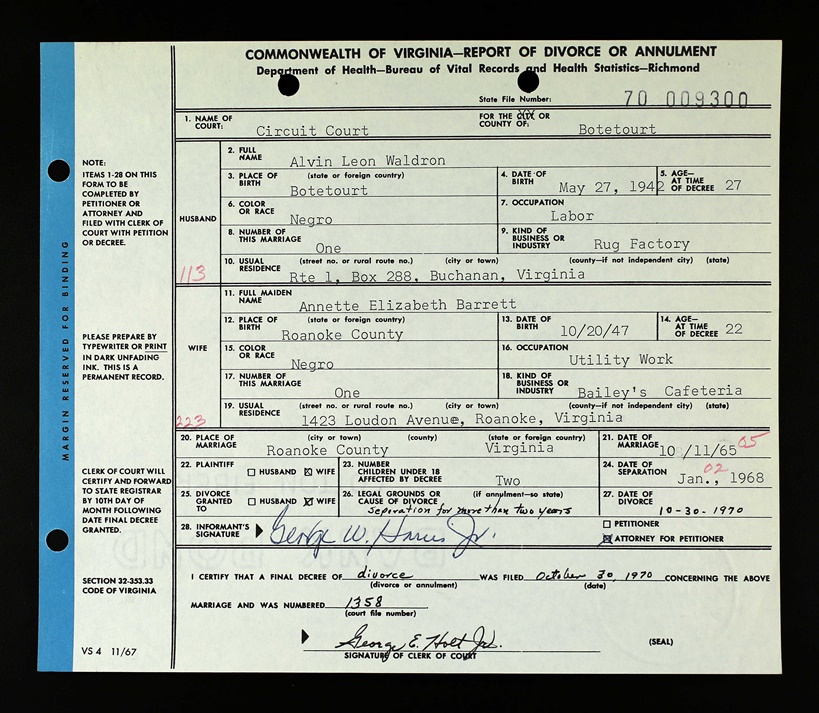 COMMONWEALTH OF VIRGINIA—REPORT OF DIVORCE OR ANNULMENT
Department of Health—Bureau of Vital Records and Health Statistics—Richmond
State File Number: 70 009300
1. NAME OF COURT: Circuit Court FOR THE CITY OR COUNTY OF: Botetourt
MARGIN RESERVED FOR BINDING
NOTE:
ITEMS 1-28 ON THIS
FORM TO BE
COMPLETED BY
PETITIONER OR
ATTORNEY AND
FILED WITH CLERK OF
COURT WITH PETITION
OR DECREE.
PLEASE PREPARE BY
TYPEWRITER OR PRINT
IN DARK UNFADING
INK. THIS IS A
PERMANENT RECORD.
CLERK OF COURT WILL
CERTIFY AND FORWARD
TO STATE REGISTRAR
BY 10TH DAY OF
MONTH FOLLOWING
DATE FINAL DECREE
GRANTED.
SECTION 32-353.33
CODE OF VIRGINIA
VS 4 11/67
HUSBAND
113
2. FULL NAME Alvin Leon Waldron
3. PLACE OF BIRTH (state or foreign country) Botetourt 4. DATE OF BIRTH May 27, 1942 5. AGE—AT TIME OF DECREE 27
6. COLOR OR RACE Negro 7. OCCUPATION Labor
8. NUMBER OF THIS MARRIAGE One 9. KIND OF BUSINESS OR INDUSTRY Rug Factory
10. USUAL RESIDENCE (street no. or rural route no.) (city or town) (county—if not independent city) (state)
Rte 1, Box 288, Buchanan, Virginia
WIFE
223
11. FULL MAIDEN NAME Annette Elizabeth Barrett
12. PLACE OF BIRTH (state or foreign country) Roanoke County 13. DATE OF BIRTH 10/20/47 14. AGE—AT TIME OF DECREE 22
15. COLOR OR RACE Negro 16. OCCUPATION Utility Work
17. NUMBER OF THIS MARRIAGE One 18. KIND OF BUSINESS OR INDUSTRY Bailey's Cafeteria
19. USUAL RESIDENCE (street no. or rural route no.) (city or town) (county—if not independent city) (state)
1423 Loudon Avenue, Roanoke, Virginia
20. PLACE OF MARRIAGE (city or town) (county) (state or foreign country) Roanoke County Virginia 21. DATE OF MARRIAGE 10/11/65 05
22. PLAINTIFF HUSBAND WIFE 23. NUMBER CHILDREN UNDER 18 AFFECTED BY DECREE Two 24. DATE OF SEPARATION 02 Jan., 1968
25. DIVORCE GRANTED TO HUSBAND WIFE 26. LEGAL GROUNDS OR CAUSE OF DIVORCE (if annulment—so state) separation for more than two years 27. DATE OF DIVORCE 10-30-1970
28. INFORMANT'S SIGNATURE George W. Harris Jr. PETITIONER
ATTORNEY FOR PETITIONER
I CERTIFY THAT A FINAL DECREE OF divorce WAS FILED October 30, 1970 CONCERNING THE ABOVE
(divorce or annulment) (date)
MARRIAGE AND WAS NUMBERED 1358
(court file number)
George E. Holt Jr. (SEAL)
SIGNATURE OF CLERK OF COURT